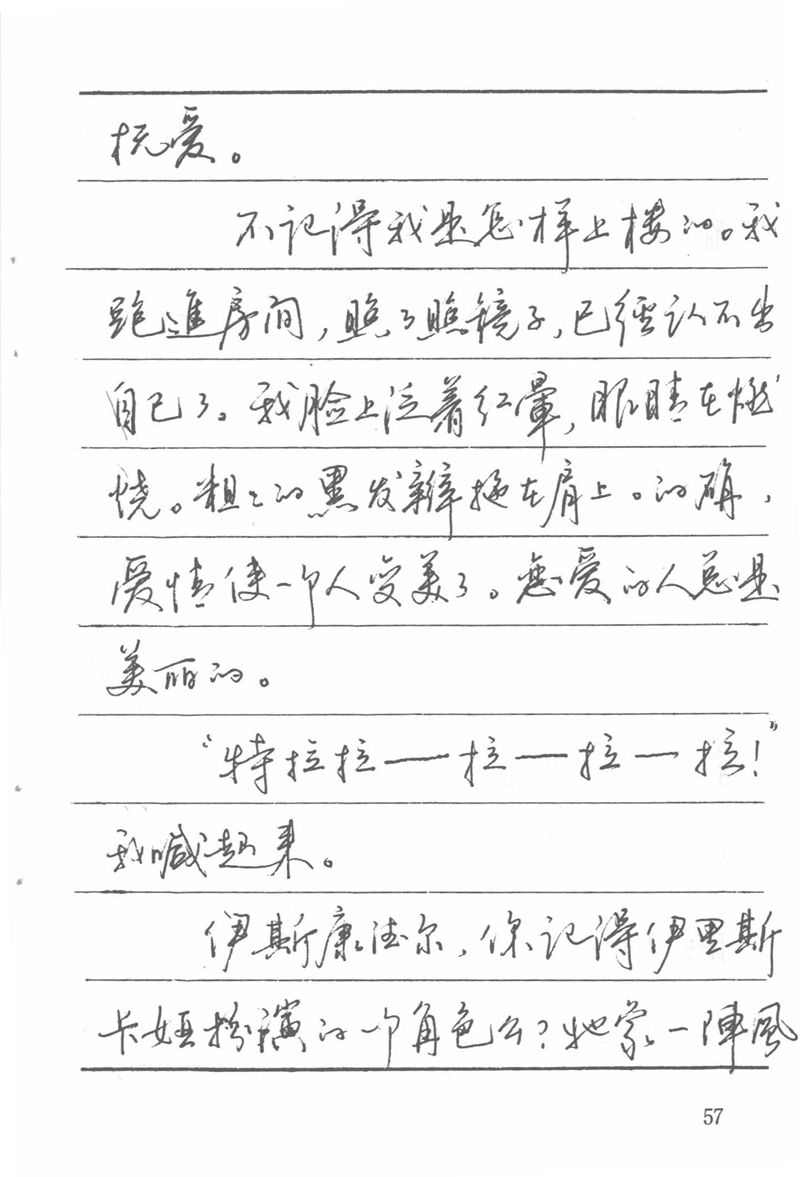 抚爱。
不记得我是怎样上楼的。我
跑進房间，照了照镜子，已經认不出
自己了。我脸上泛着红暈，眼睛在燃
烧。粗々的黑发辫拖在肩上。的确，
爱情使一个人变美了。恋爱的人总是
美丽的。
“特拉拉——拉—拉—拉！”
我喊起来。
伊斯康德尔，你记得伊里斯
卡娅扮演的一个角色么？她象一陣風
57